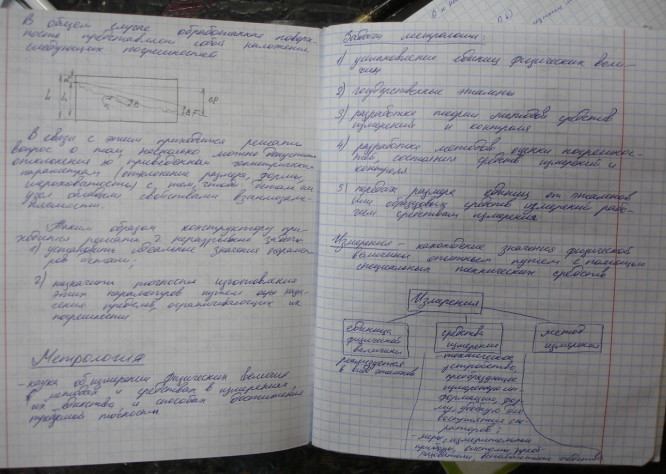 В общем случае обработанная поверх-
ность представляет собой наложение
следующих погрешностей
В связи с этим приходится решать
вопрос о том, насколько можно допустить
отклонения по приведенным геометрическим
параметрам (отклонение размера, формы,
шероховатости) с тем, чтобы детали
обладали свойствами взаимозаме-
няемости.
Таким образом конструктору при-
ходится решать 2 неразрывные задачи
1) установить идеальные значения парамет-
ров детали;
2) назначить точность изготовления
этих параметров путем назна-
чения пределов, ограничивающих их
погрешности
Метрология
- наука об измерении физических величин
методах и средствах измерения,
их единства и способах достижения
требуемой точности
Задачи метрологии:
1) установление единиц физических вели-
чин
2) государственные эталоны
3) разработка теории методов средств
измерения и контроля
4) разработка методов оценки погрешнос-
тей, состояния средств измерения и
контроля
5) передача размера единиц от эталонов
или образцовых средств измерений рабо-
чим средствам измерения
Измерения - нахождение значения физической
величины опытным путем с помощью
специальных технических средств
Измерения
единица
физической
величины
реализуется
в виде эталонов
средства
измерения
техническое
устройство,
преобразующее
измерительную ин-
формацию
форму, удобную для
восприятия опе-
ратором;
метод
измерения
- меры, измерительные
приборы, системы